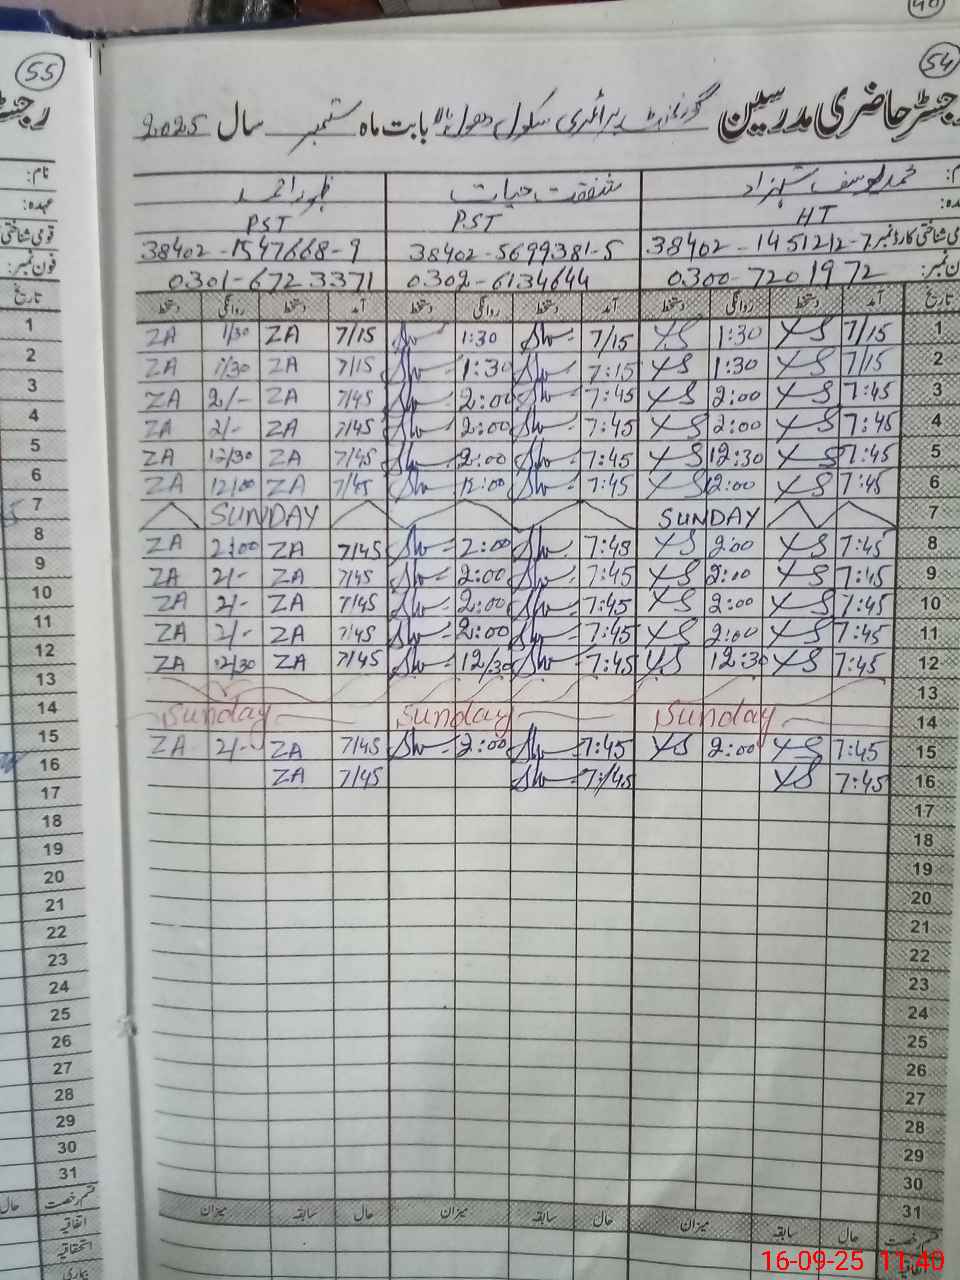 40
55
54
رجسٹر حاضری مدرسین گورنمنٹ پرائمری سکول دھول بالا بابت ماہ ستمبر سال 2025
محمد یوسف شہزاد شفقت حیات ظہور احمد
HT PST PST
38402-1451212-7 38402-5699381-5 38402-1547668-9
0300-7201972 0302-6134644 0301-6723371
تاریخ آمد دستخط روانگی دستخط آمد دستخط روانگی دستخط آمد دستخط روانگی دستخط تاریخ
1 7/15 YS 1:30 YS 7/15 1:30 7/15 ZA 1/30 ZA 1
2 7/15 YS 1:30 YS 7:15 1:30 7/15 ZA 1/30 ZA 2
3 7:45 YS 2:00 YS 7:45 2:00 7/45 ZA 2/- ZA 3
4 7:45 YS 2:00 YS 7:45 2:00 7/45 ZA 2/- ZA 4
5 7:45 YS 12:30 YS 7:45 2:00 7/45 ZA 12/30 ZA 5
6 7:45 YS 12:00 YS 7:45 12:00 7/45 ZA 12/00 ZA 6
7 SUNDAY SUNDAY 7
8 7:45 YS 2:00 YS 7:45 2:00 7/45 ZA 2:00 ZA 8
9 7:45 YS 2:00 YS 7:45 2:00 7/45 ZA 2/- ZA 9
10 7:45 YS 2:00 YS 7:45 2:00 7/45 ZA 2/- ZA 10
11 7:45 YS 2:00 YS 7:45 2:00 7/45 ZA 2/- ZA 11
12 7:45 YS 12:30 YS 7:45 12/30 7/45 ZA 12/30 ZA 12
13 13
14 Sunday Sunday Sunday 14
15 7:45 YS 2:00 YS 7:45 2:00 7/45 ZA 2/- ZA 15
16 7:45 YS 7:/45 7/45 ZA 16
17 17
18 18
19 19
20 20
21 21
22 22
23 23
24 24
25 25
26 26
27 27
28 28
29 29
30 30
31 31
قسم رخصت حال سابقہ میزان حال سابقہ میزان حال سابقہ میزان قسم رخصت
اتفاقیہ
استحقاقیہ
بیماری
نام:
عہدہ:
قومی شناختی
فون نمبر:
16-09-25 11:40